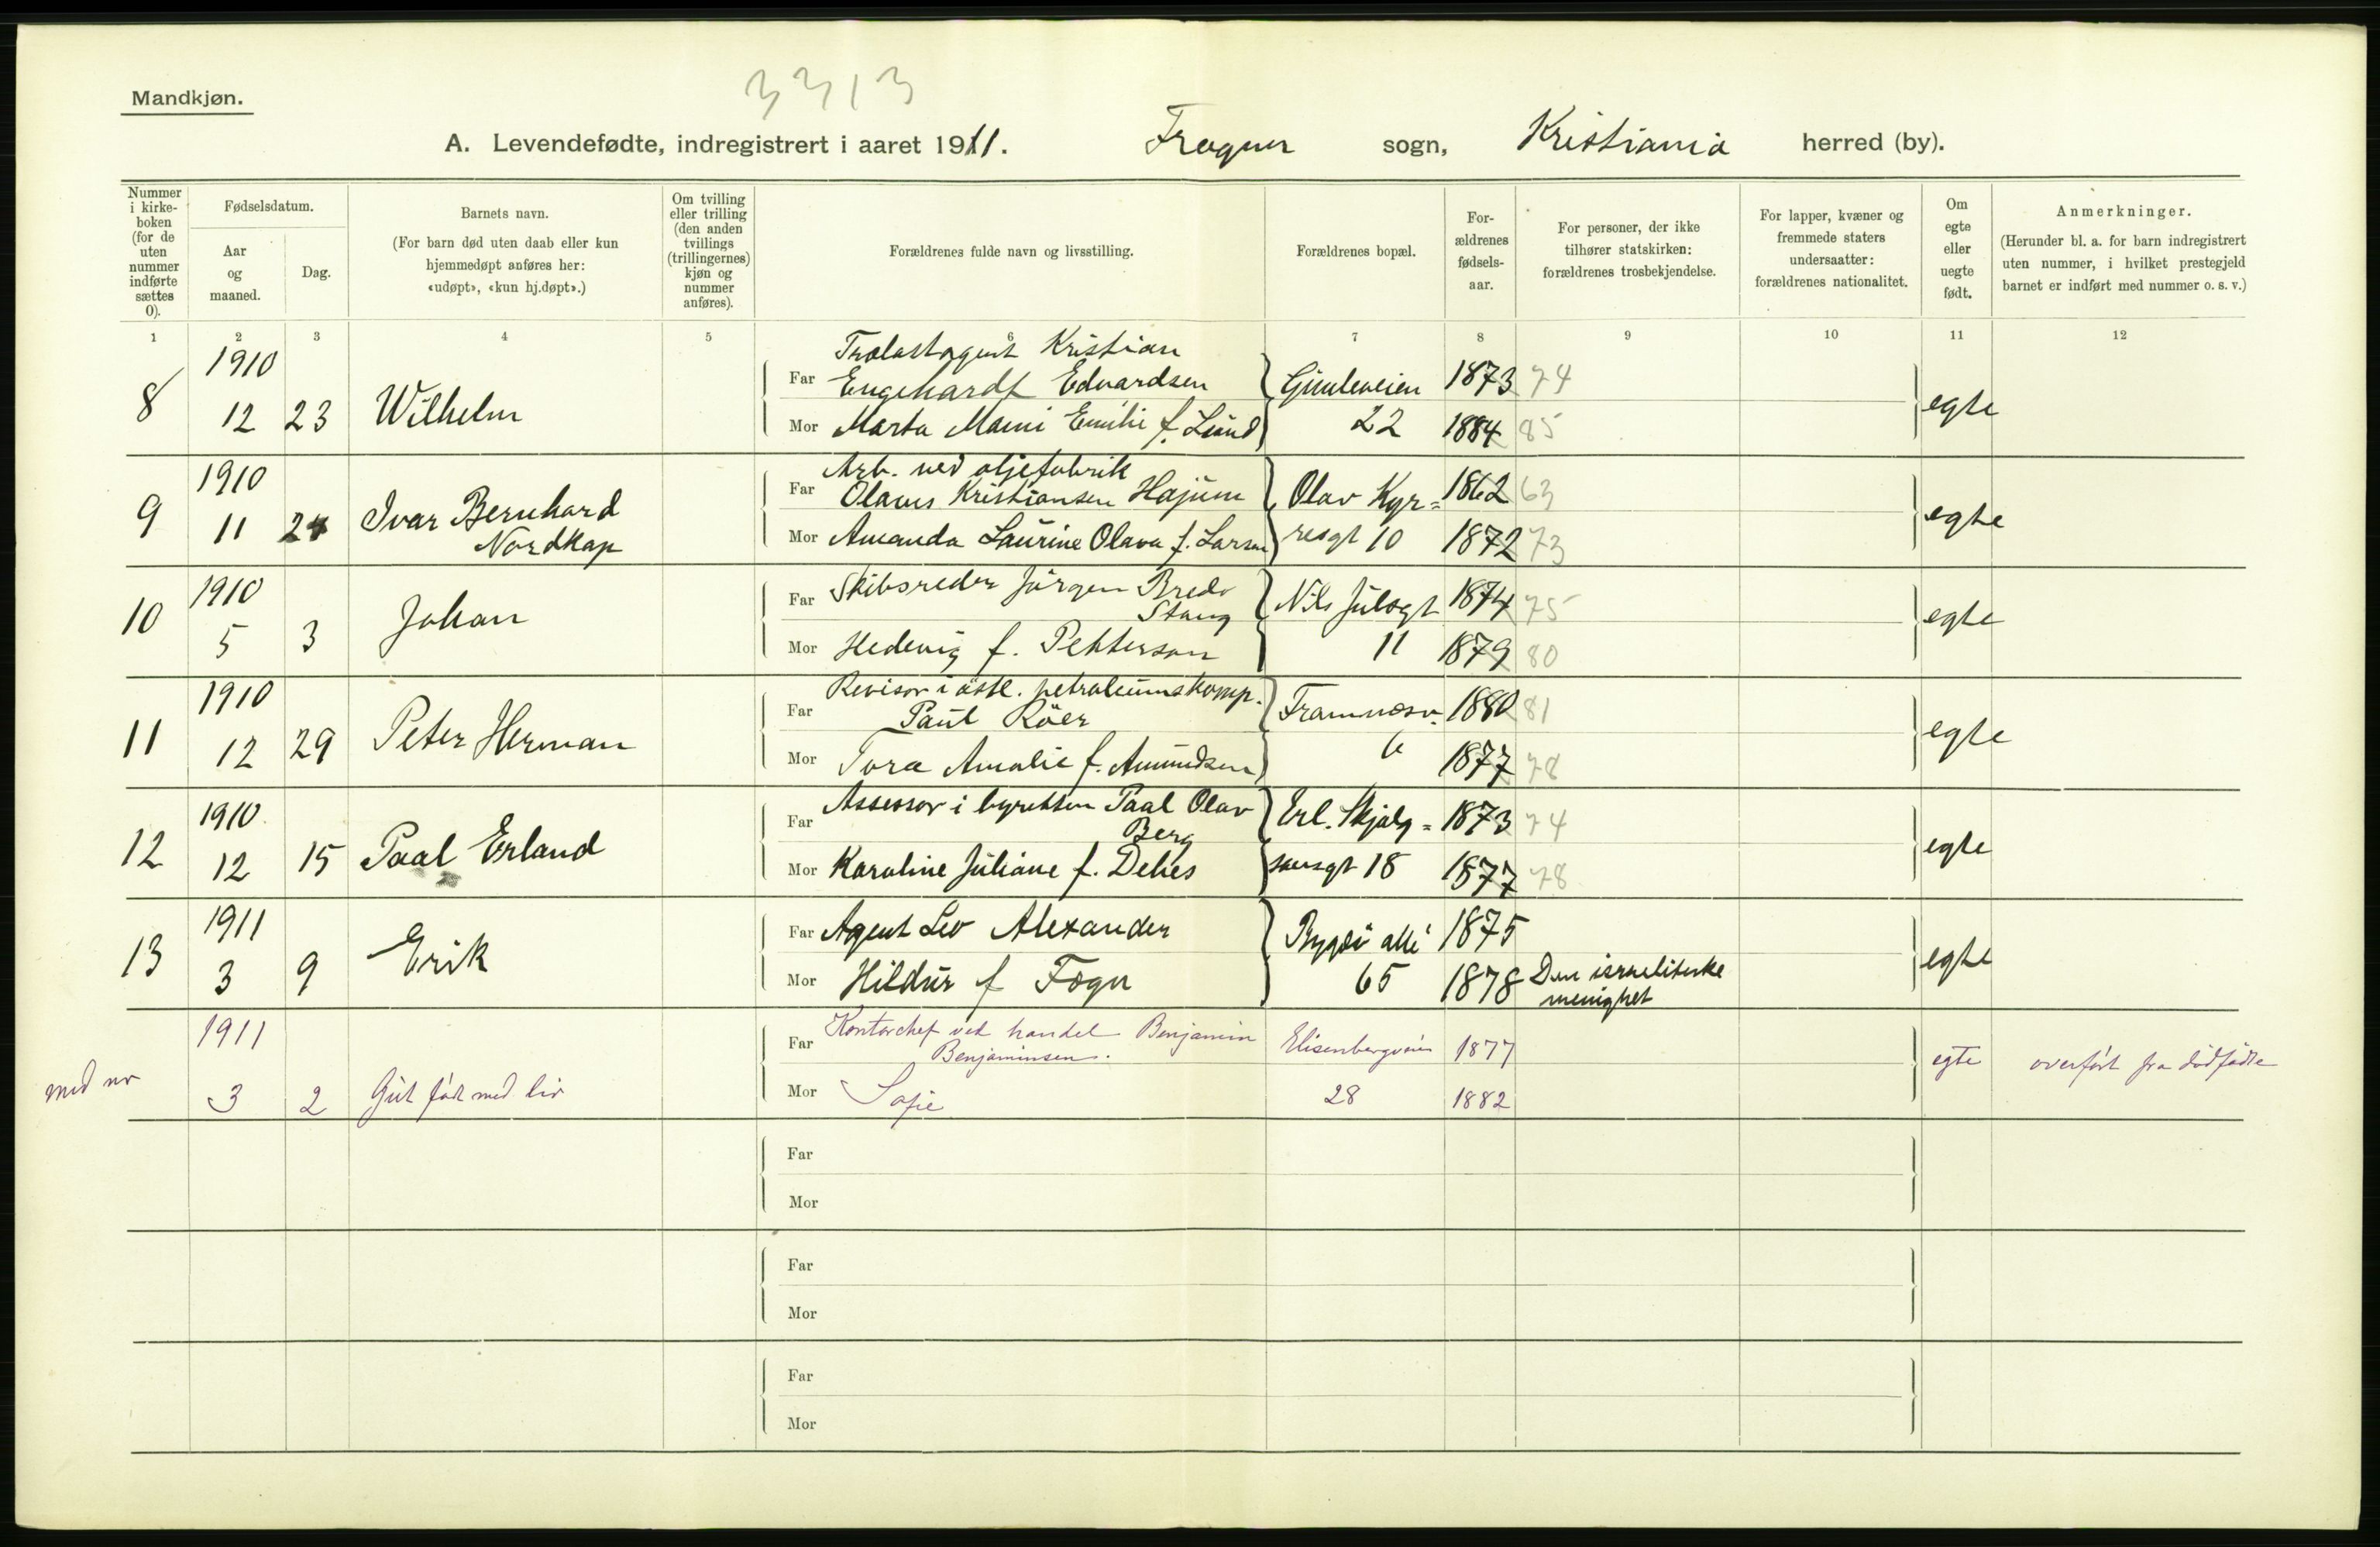 3313
Mandkjøn.
A. Levendefødte, indregistrert i aaret 1911. Frogner sogn, Kristiania herred (by).
Nummer i kirke- boken (for de uten nummer indførte sættes 0).
Fødselsdatum.
Aar og maaned.
Dag.
Barnets navn.
(For barn død uten daab eller kun hjemmedøpt anføres her: «udøpt», «kun hj.døpt».)
Om tvilling eller trilling (den anden tvillings (trillingernes) kjøn og nummer anføres).
Forældrenes fulde navn og livsstilling.
Forældrenes bopæl.
For- ældrenes fødsels- aar.
For personer, der ikke tilhører statskirken: forældrenes trosbekjendelse.
For lapper, kvæner og fremmede staters undersaatter: forældrenes nationalitet.
Om egte eller uegte født.
Anmerkninger.
(Herunder bl. a. for barn indregistrert uten nummer, i hvilket prestegjeld barnet er indført med nummer o. s. v.)
1 2 3 4 5 6 7 8 9 10 11 12
8 1910 12 23 Wilhelm
Far Trælastagent Kristian
Engehardt Edvardsen Gimleveien 1873 74
Mor Marta Mami Emilie f. Lund 22 1884 85 egte
9 1910 11 24 Ivar Bernhard
Nordkap
Far Arb. ved oljefabrik
Olaus Kristiansen Hajum Olav Kyr= 1862 63
Mor Amanda Laurine Olava f. Larsen resgt 10 1872 73 egte
10 1910 5 3 Johan
Far Skibsreder Jörgen Bredo
Stang Nils Julsgt 1874 75
Mor Hedevig f. Petterson 11 1879 80 egte
11 1910 12 29 Peter Herman
Far Revisor i östl. petroleumskomp.
Paul Röer Framnæsv. 1880 81
Mor Tora Amalie f. Amundsen 6 1877 78 egte
12 1910 12 15 Paal Erland
Far Assessor i byretten Paal Olav
Berg Erl. Skjalg= 1873 74
Mor Karoline Juliane f. Dehes sønsgt 18 1877 78 egte
13 1911 3 9 Erik
Far Agent Leo Alexander Bygdö allé 1875
Mor Hildur f Fogn 65 1878 Den israelitiske
menighet egte
med nr 1911 3 2 Gut født med liv
Far Kontorchef ved handel Benjamin
Benjaminsen. Elisenbergveien 1877
Mor Sofie 28 1882 egte overført fra dødfødte
Far
Mor
Far
Mor
Far
Mor